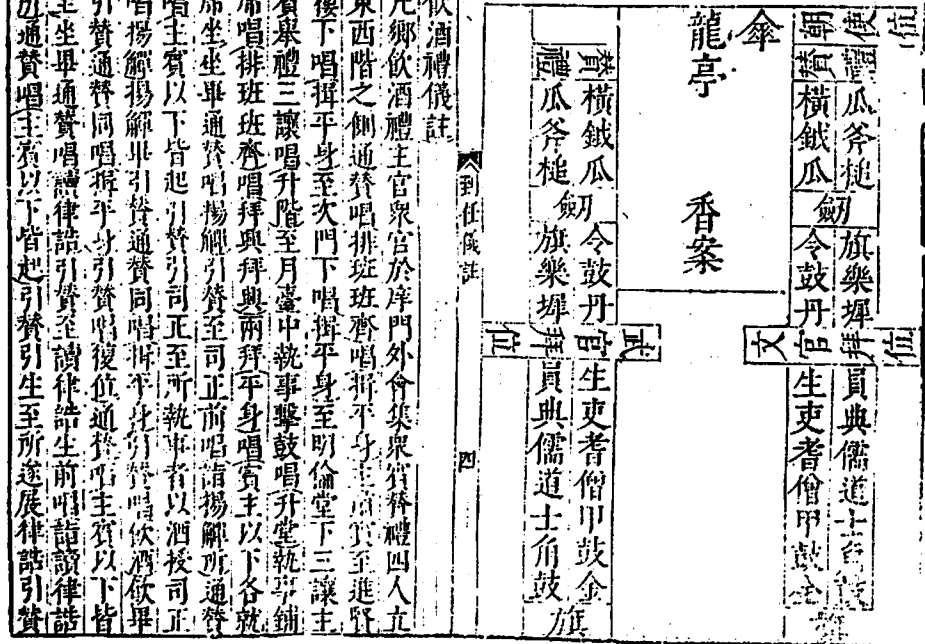 位
使 朝
禮 贊
瓜斧槌 橫鉞瓜
劔
旗樂墀 令鼓丹
位拜官文
員典儒道士
生吏耆僧甲鼓金
傘
龍亭
香案
贊禮
橫鉞瓜
瓜斧槌
劔
令鼓丹
旗樂墀
武官拜位
生吏耆僧甲鼓金
員典儒道士角鼓
旗
到任儀註
四
飲酒禮儀註
凡鄉飲酒禮主官衆官於庠門外會集衆賓贊禮四人立
東西階之側通贊唱排班班齊唱揖平身主肅賓至進賢
樓下唱揖平身至次門下唱揖平身至明倫堂下三讓主
賓舉禮三讓唱升階至月臺中執事擊鼓唱升堂執事鋪
席唱排班班齊唱拜興拜興兩拜平身唱賓主以下各就
席坐坐畢通贊唱揚觶引贊至司正前唱請揚觶所通贊
唱主賓以下皆起引贊引司正至所執事者以酒授司正
唱揚觶揚觶畢引贊通贊同唱揖平身引贊唱飲酒飲畢
引贊通贊同唱揖平身引贊唱復位通贊唱主賓以下皆
坐坐畢通贊唱讀律誥引贊至讀律誥生前唱請讀律誥
通贊唱主賓以下皆起引贊引生至所遂展律誥引贊